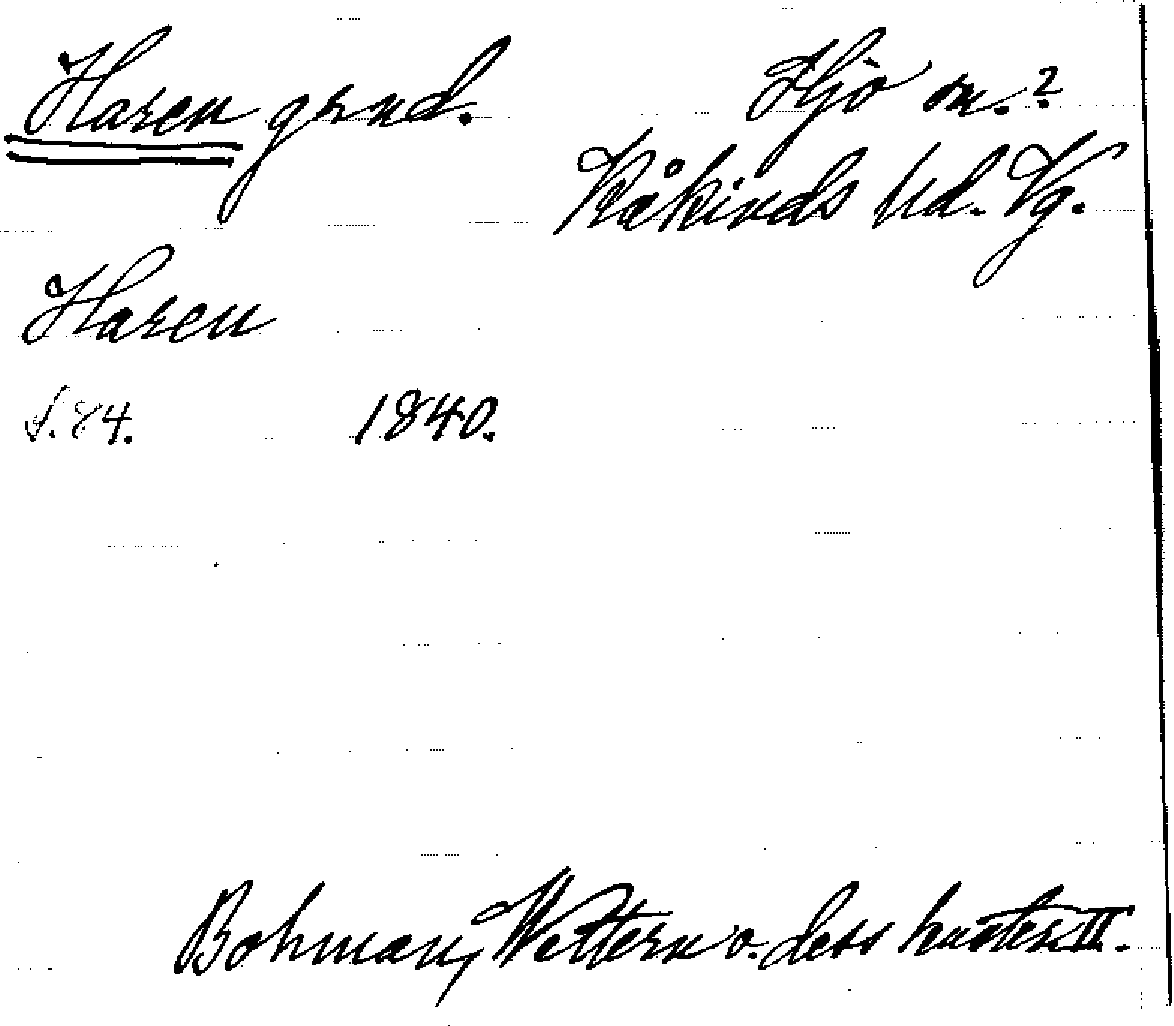 Haren grnd. Hjo sn.?
Kåkinds hd. Vg.
Haren
s. 84. 1840.
Bohman, Wettern o. dess kuster II.